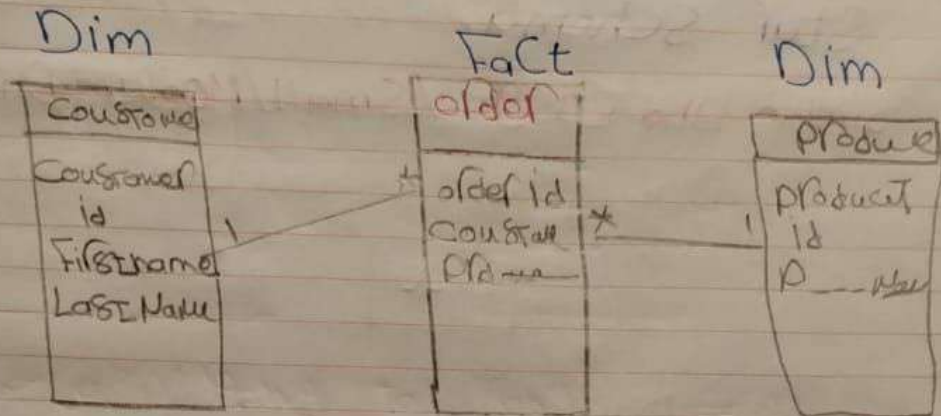 Dim
Coustome
Coustomer
id
Firstname
Last Name
1
Fact
order
*
order id
Coustom
*
Dim
produc
product
id
1